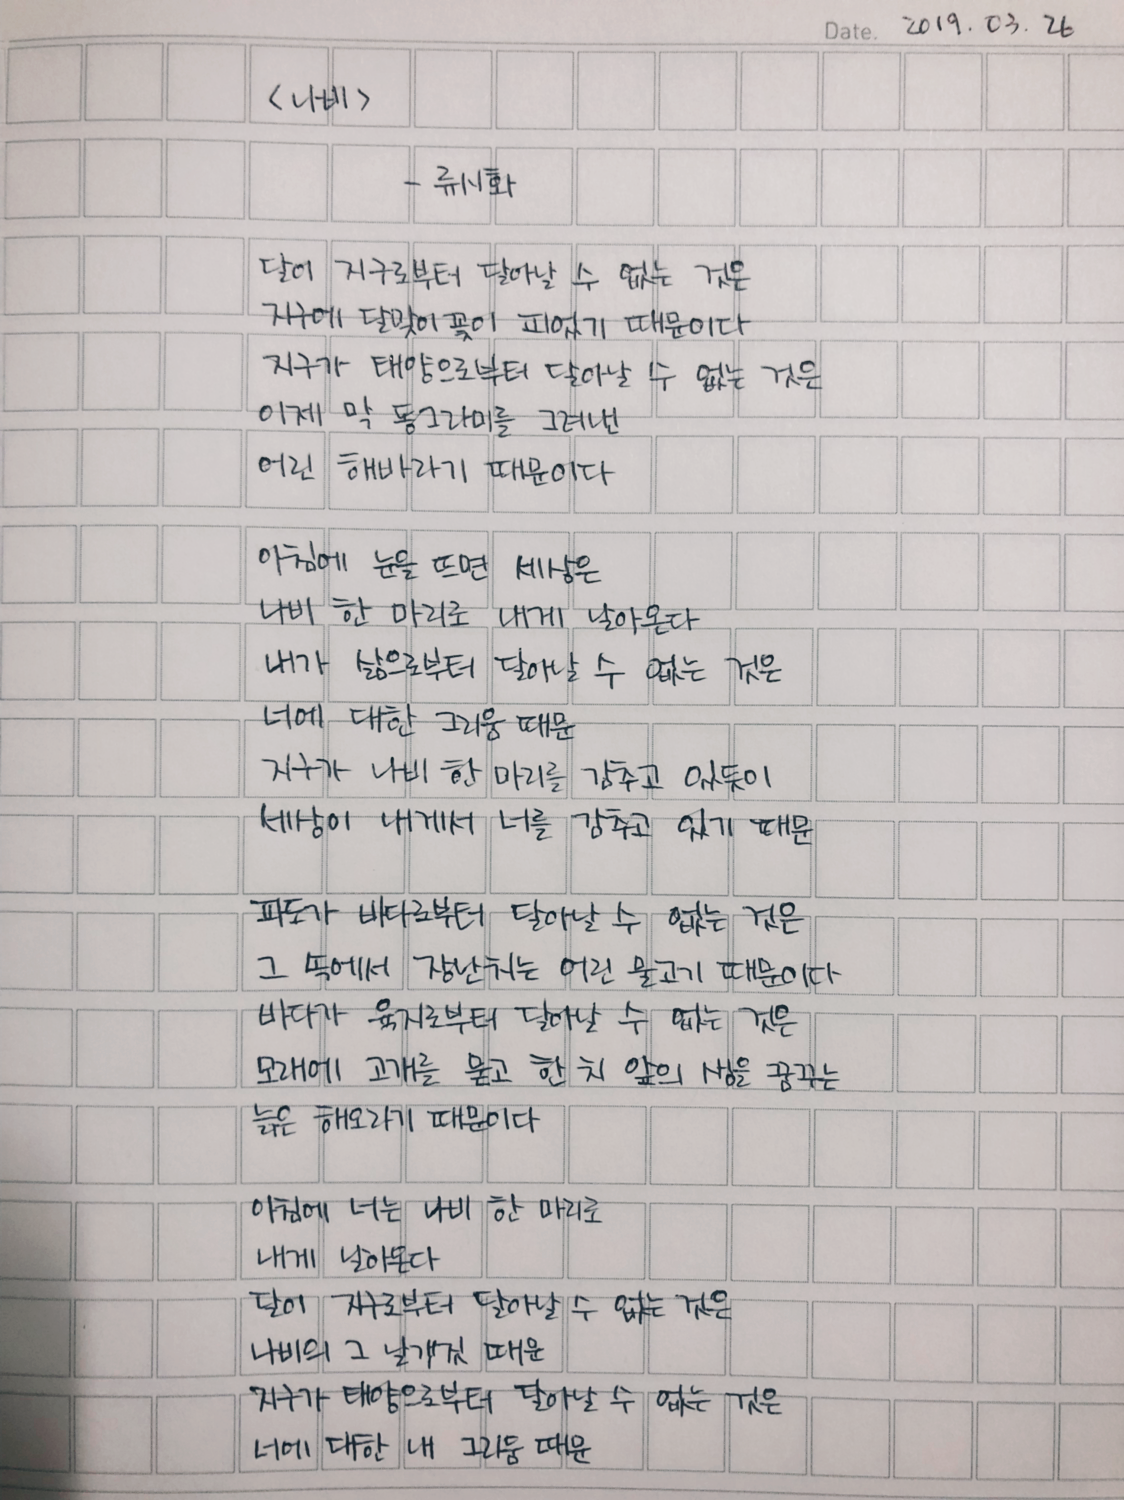 Date. 2019. 03. 26
<나비>
- 류시화
달이 지구로부터 달아날 수 없는 것은
지구에 달맞이꽃이 피었기 때문이다
지구가 태양으로부터 달아날 수 없는 것은
이제 막 동그라미를 그려낸
어린 해바라기 때문이다
아침에 눈을 뜨면 세상은
나비 한 마리로 내게 날아온다
내가 삶으로부터 달아날 수 없는 것은
너에 대한 그리움 때문
지구가 나비 한 마리를 감추고 있듯이
세상이 내게서 너를 감추고 있기 때문
파도가 바다로부터 달아날 수 없는 것은
그 속에서 장난치는 어린 물고기 때문이다
바다가 육지로부터 달아날 수 없는 것은
모래에 고개를 묻고 한 치 앞의 생을 꿈꾸는
늙은 해오라기 때문이다
아침에 너는 나비 한 마리로
내게 날아온다
달이 지구로부터 달아날 수 없는 것은
나비의 그 날개짓 때문
지구가 태양으로부터 달아날 수 없는 것은
너에 대한 내 그리움 때문